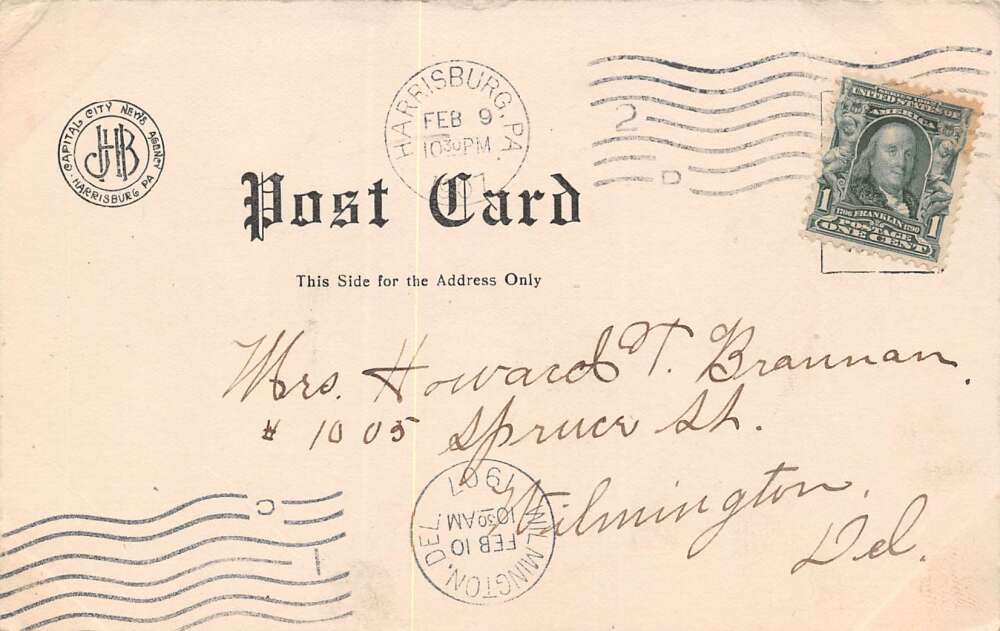 CAPITAL CITY NEWS AGENCY
JHB
HARRISBURG PA
HARRISBURG, PA.
FEB 9
10 30 PM
1907
2
D
UNITED STATES OF
AMERICA
1 1796 FRANKLIN 1790 1
POSTAGE
ONE CENT
Post Card
This Side for the Address Only
Mrs. Howard T. Brannan.
# 1005 Spruce St.
Wilmington,
Del.
WILMINGTON, DEL.
FEB 10
10 30 AM
1907
C
1